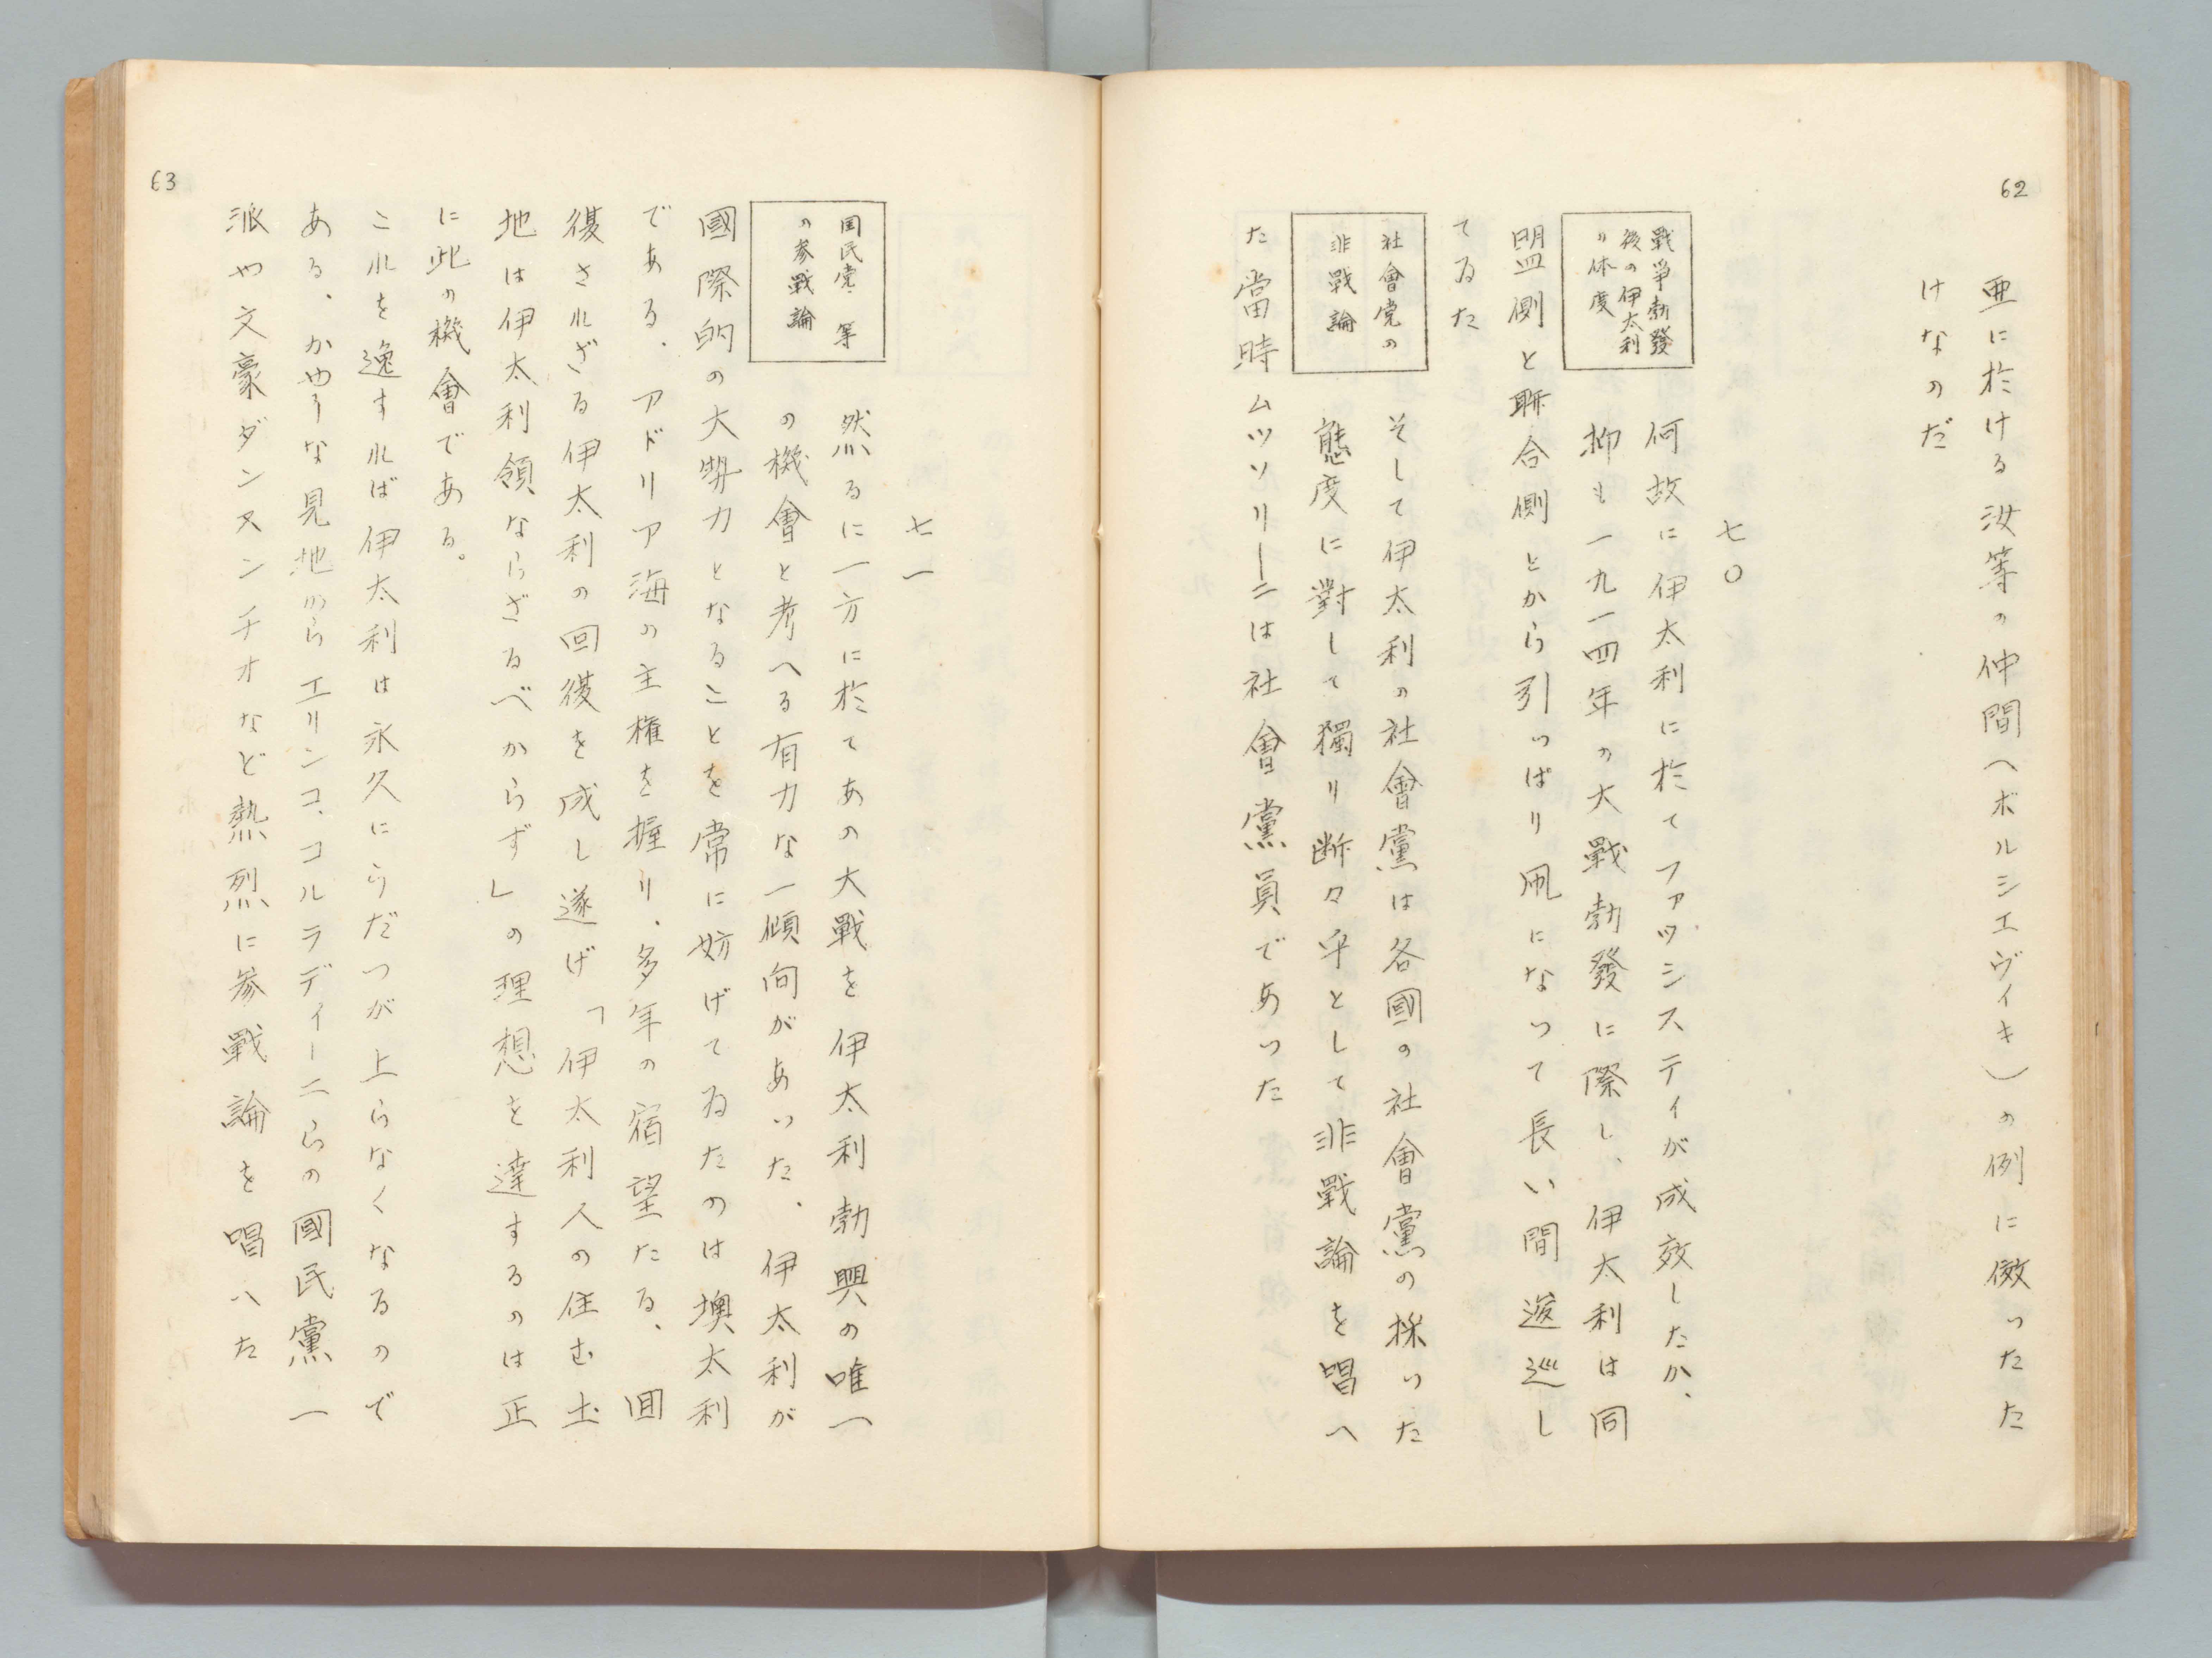 62
亜に於ける汝等の仲間(ボルシエヴィキ)の例に倣ったた
けなのだ
七〇
戰爭勃發
後の伊太利
の体度
何故に伊太利に於てファッシスティが成效したか、
抑も一九一四年の大戰勃發に際し、伊太利は同
盟側と聯合側とから引っぱり凧になって長い間逡巡し
てゐた
社會党の
非戰論
そして伊太利の社會黨は各國の社會黨の採った
態度に對して獨り断々乎として非戰論を唱へ
た當時ムッソリーニは社會黨員であった
63
七一
国民党等
の参戰論
然るに一方に於てあの大戰を伊太利勃興の唯一
の機會と考へる有力な一傾向があった、伊太利が
國際的の大勢力となることを常に妨げてゐたのは墺太利
である、アドリア海の主権を握り、多年の宿望たる、回
復されざる伊太利の回復を成し遂げ「伊太利人の住む土
地は伊太利領ならざるべからず」の理想を達するのは正
に此の機會である。
これを逸すれば伊太利は永久にうだつが上らなくなるので
ある、かやうな見地からエリンコ、コルラディーニらの國民黨一
派や文豪ダンヌンチオなど熱烈に参戰論を唱へた